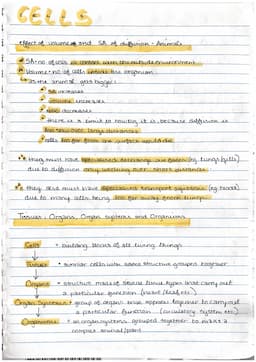 CELLS
• effect of volume and SA of diffusion - Animals
SA: no of cells in contact with the outside environment
Volume: no of cells inside the organism
as the animal gets bigger:
SA increases
volume increases
decreases
there is a limit to how big it is because diffusion is
too slow over large distances
cells too far from the surface would die
they must have specialised exchange surfaces (eg lungs/gills)
due to diffusion only working over short distances
they also must have specialised transport systems (eg blood)
due to many cells being too far away from lungs
Tissues, Organs, Organ Systems and Organisms
Cells • building blocks of all living things
Tissues • similar cells with same structure grouped together
Organs • structure made of several tissue types that carry out
a particular function (heart/leaf etc.)
Organ Systems • group of organs that operate together to carry out
a particular function (circulatory system etc.)
Organisms • organ systems grouped together to make a
complex animal/plant